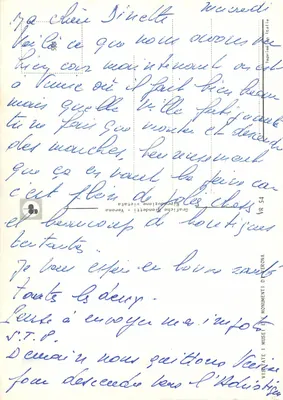 Mercredi
Ma chère Dinette
Voilà ce que nous avons vu
hier, maintenant on est
à Venise où il fait bien beau
mais quelle ville fatiguante
tu ne fais que monter et descendre
des marches, heureusement
que ça en vaut la peine car
c'est plein de jolies choses
et beaucoup de boutiques
tentantes.
Je vous espère en bonne santé
toutes les deux.
Pense à envoyer mes impôts
S.T.P.
Demain nous quittons Venise
pour descendre vers l'Adriatique
VR 54